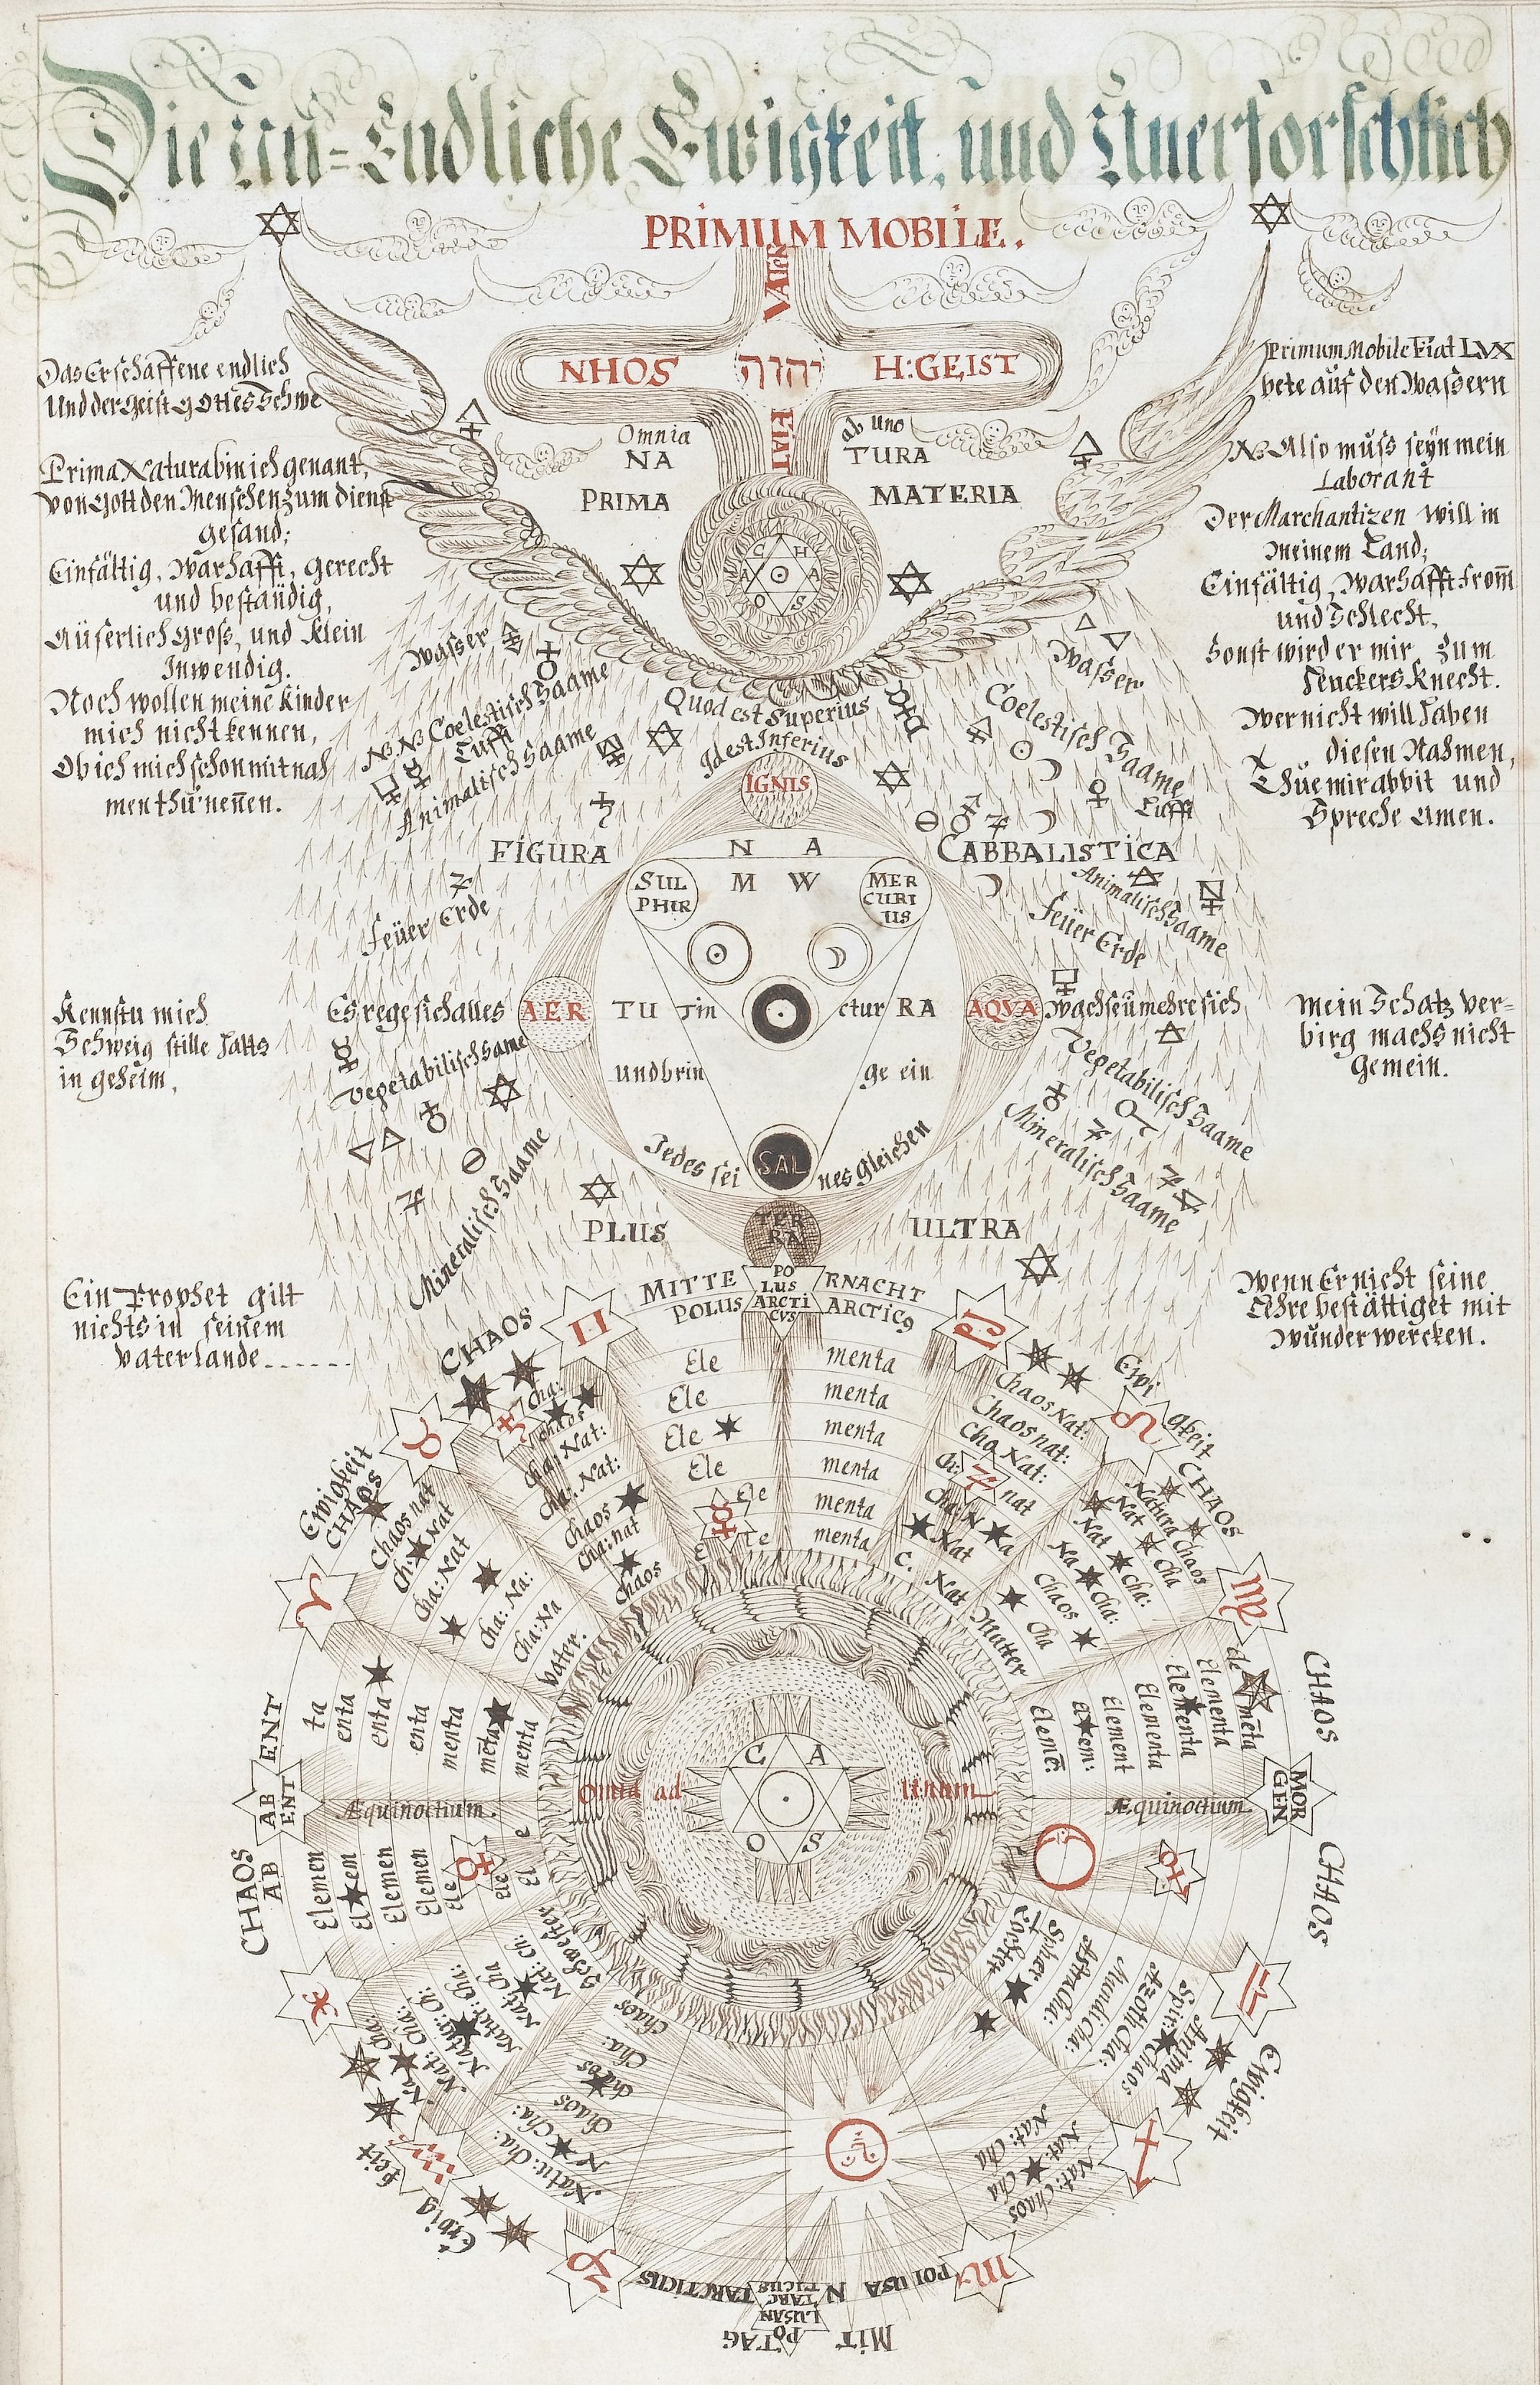 Die Un-Endliche Ewigkeit, und Unerforschlich
PRIMUM MOBILE.
VATER
NHOS יהוה H:GEIST
FIAT
Das Erschaffene endlich
Und der Geist GOttes Schwe
Primum Mobile Fiat LVX
bete auf den Wassern
Omnia ab uno
NA TURA
PRIMA MATERIA
C H
A A
O S
Prima Natura bin ich genant,
von Gott den Menschen zum dienst
gesand;
Einfältig, Warhafft, gerecht
und beständig,
Äuserlich Gross, und Klein
Inwendig.
Noch wollen meine Kinder
mich nicht kennen,
Ob ich mich schon mit nah
men thu nenen.
NB Also muss seyn mein
Laborant
Der Marchantizen will in
meinem Land;
Einfältig, Warhafft from
und Schlecht,
Sonst wird er mir zum
Henckers Knecht.
Wer nicht will haben
diesen Nahmen,
Thue mir abbit und
Spreche Amen.
Wasser
NB NB Coelestisch Saame
Lufft
Animalisch Saame
Wasser
Coelestisch Saame
Lufft
Quod est Superius
Id est Inferius
IGNIS
FIGURA CABBALISTICA
N A
M W
SUL
PHIR
MER
CURI
US
Feüer Erde
Animalisch Saame
Feüer Erde
Kennstu mich
Schweig stille halts
in geheim,
Es rege sich alles AER TU Tin ctur RA AQVA Wachse u mehre sich
Mein Schatz ver-
birg machs nicht
Gemein.
Vegetabilisch Same
und brin ge ein
Vegetabilisch Saame
Mineralisch Saame
Mineralisch Saame
Jedes sei nes gleichen
SAL
TER
RA
PLUS ULTRA
Ein Prophet gilt
nichts in seinem
Vaterlande......
Wenn Er nicht seine
Lehre bestättiget mit
Wunderwercken.
MITTE RNACHT
POLUS ARCTIC9
PO
LUS
ARCTI
CVS
CHAOS
Ewigkeit
CHAOS
Ewi gkeit
CHAOS
Ele menta
Ele menta
Ele menta
Ele menta
Ele menta
E Te menta
Cha:
chaos
Cha, Nat:
Cha, Nat:
Chaos
Cha: nat
Chaos
Chaos nat
Ch: Nat
Cha: Nat
Cha: Na:
Cha: Na
Vater.
Chaos Nat:
Chaos nat:
Cha Nat:
Ch: nat
Cha: N a
Nat
C. Nat
Mutter
Natura Chaos
Nat Cha
Nat Cha:
Na Cha:
Chaos
Cha
ta
enta
enta
enta
menta
mēta
menta
ele mēta
Elementa
Elementa
Elementa
Element
elem:
Elemē:
CHAOS
MOR
GEN
CHAOS
AB ENT
AB
ENT
CHAOS
Æquinoctium. Æquinoctium
Omnia ad unum
C A
O S
Elemen
El em
Elemen
Elemen
Ele
ele
El e
Schwester
Nat: Ch:
Nat: Cha
Natur: Cha:
Natur: Ch:
Nat: Cha:
Na Cha:
Tochter
Spher
Astra Cha:
Mundi Cha:
Azoth Cha:
Spir: Chaos
Anima
Ewigkeit
Chaos
Cha:
Chaos
Chaos
N Cha:
Natu: Cha:
Nat: Cha
Nat: Cha
Nat: Chaos
Ewig keit
POLUS AN TARCTICUS
PO
LUS AN
TARC
TICUS
MIT TAG